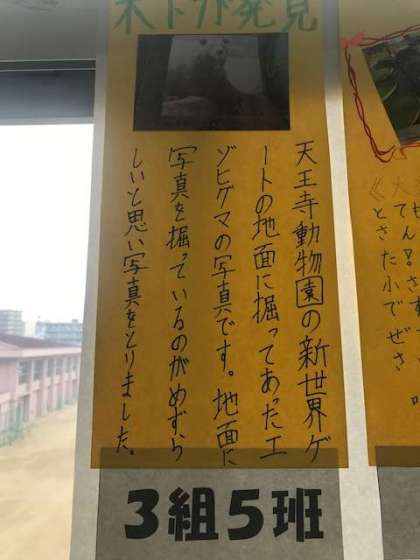 木下が発見
天王寺動物園の新世界ゲ
ートの地面に掘ってあったエ
ゾヒグマの写真です。地面に
写真を掘っているのがめずら
しいと思い写真をとりました。
3組5班